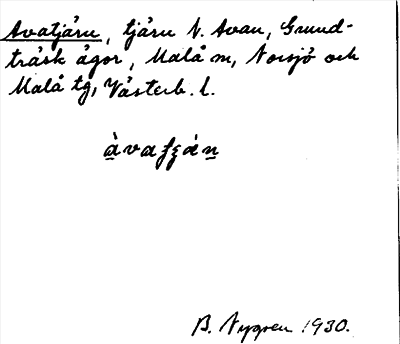 Avatjärn, tjärn N. Avan, Grund-
träsk ägor, Malå m, Norsjö och
Malå tg, Västerb. l.
B. Nygren 1930.